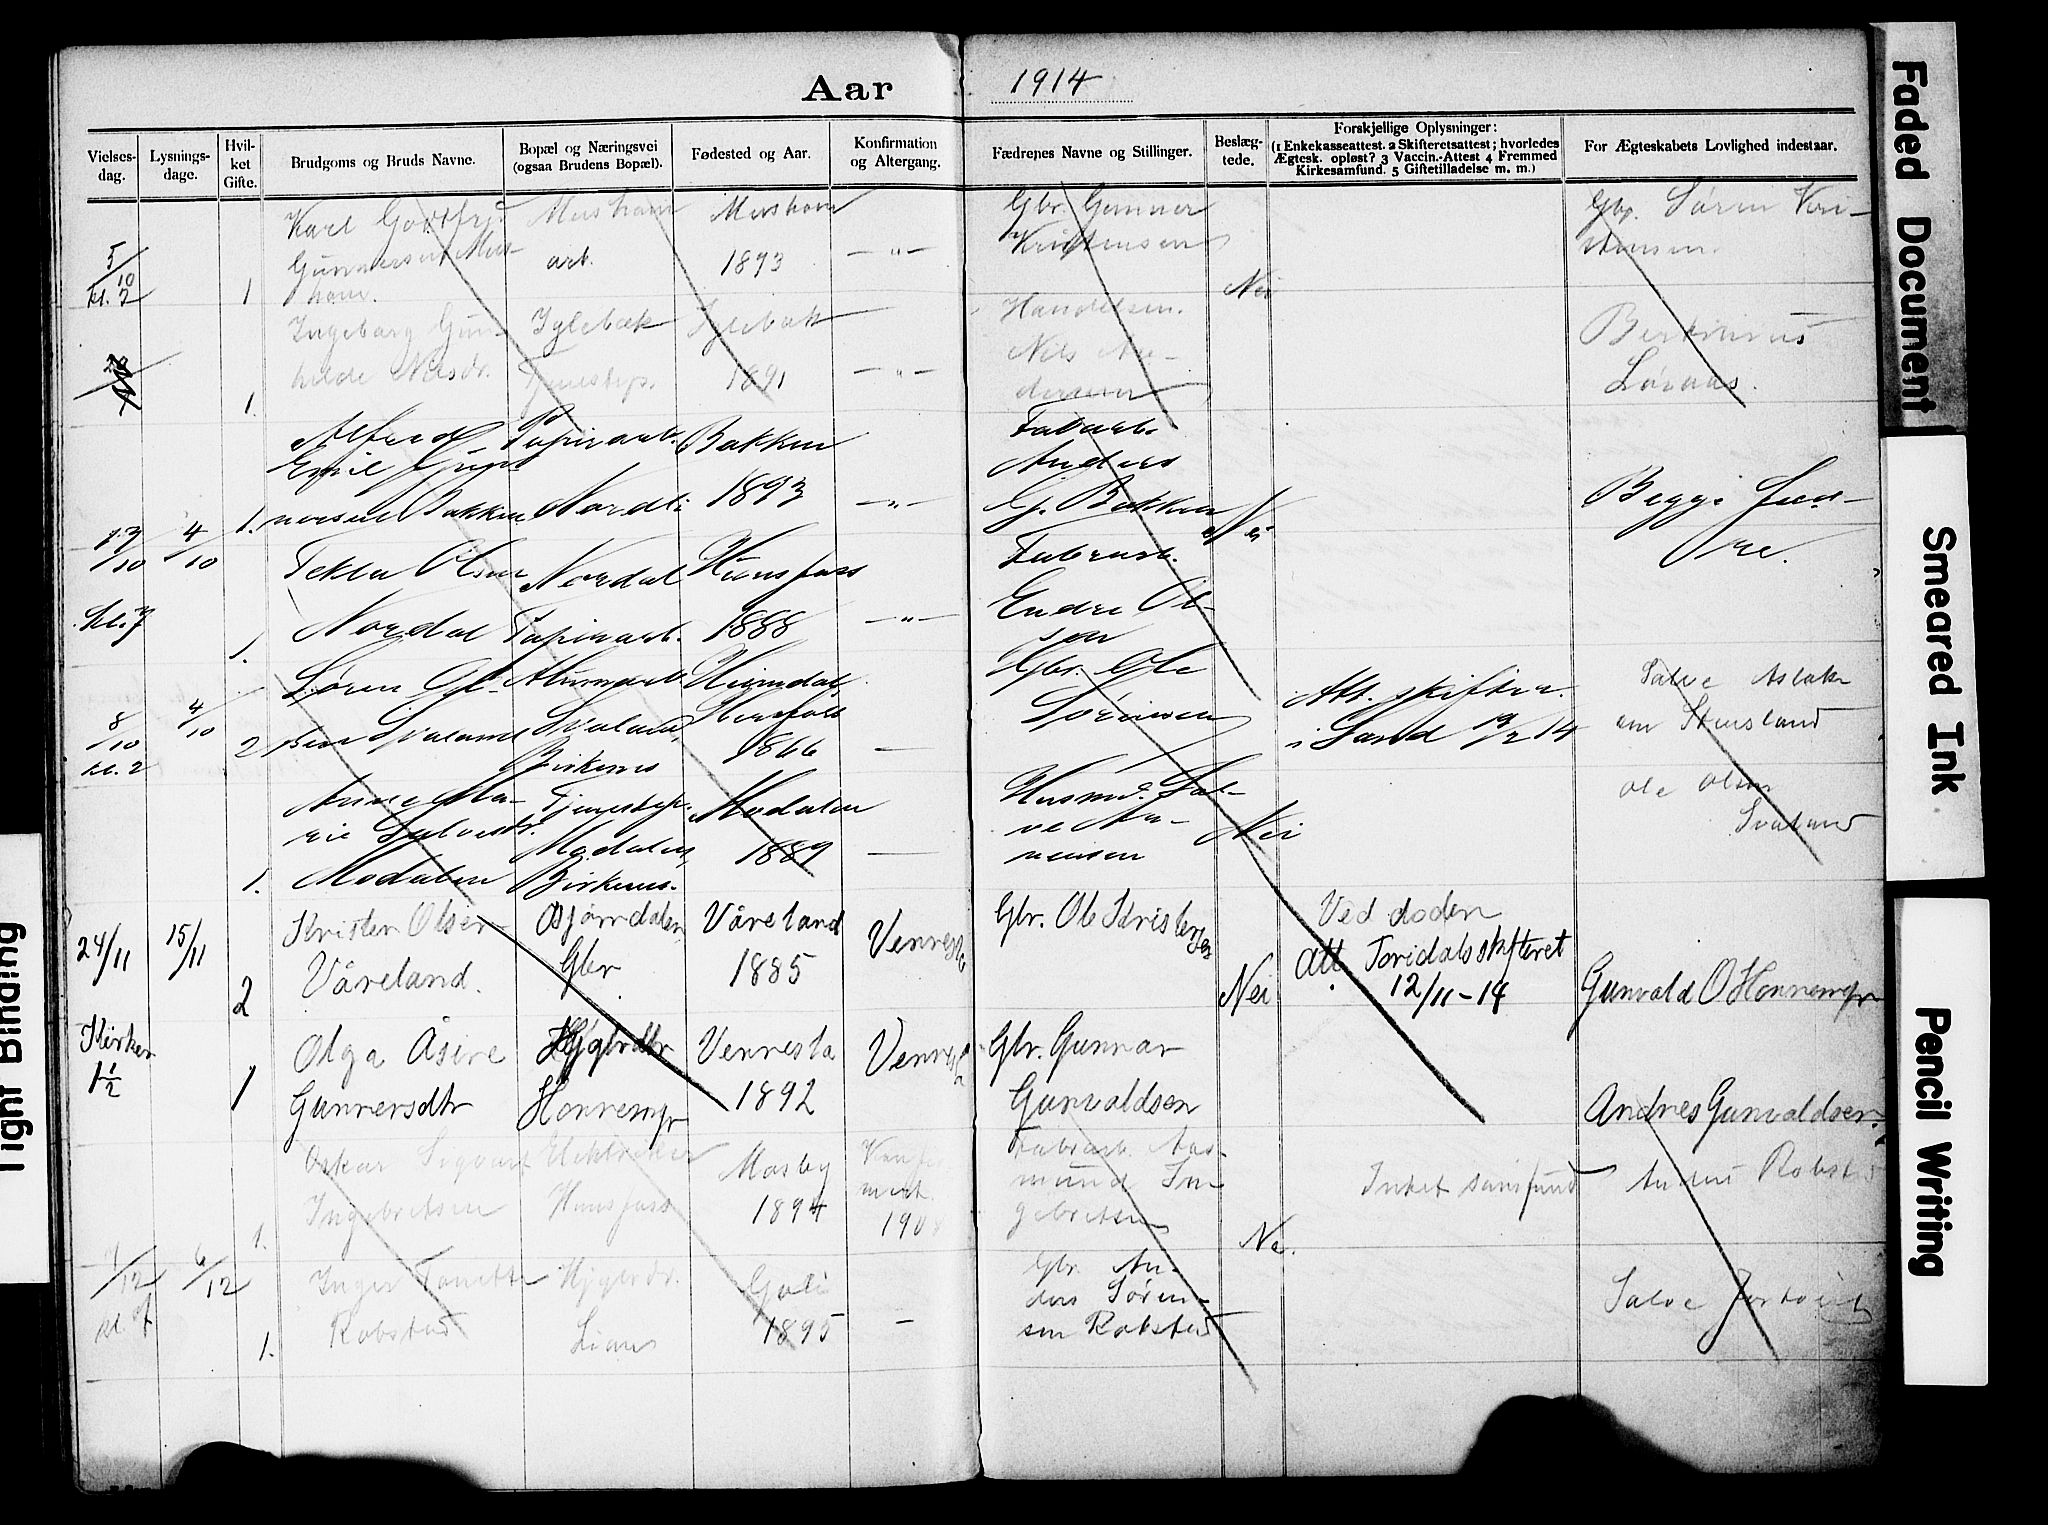 Aar 1914
Vielses-dag.
Lysnings-dage.
Hvil-ket Gifte.
Brudgoms og Bruds Navne.
Bopæl og Næringsvei (ogsaa Brudens Bopæl).
Fødested og Aar.
Konfirmation og Altergang.
Fædrenes Navne og Stillinger.
Beslæg-tede.
Forskjellige Oplysninger:
(1 Enkekasseattest. 2 Skifteretsattest; hvorledes
Ægtesk. opløst? 3 Vaccin.-Attest 4 Fremmed
Kirkesamfund. 5 Giftetilladelse m. m.)
For Ægteskabets Lovlighed indestaar.
5/10
kl. 2
1
Karl
1893
— " —
Gbr. Gunner
Kristensen
Nei
Gbr. Søren Kri-
stensen.
1.
Ingeborg Gun-
hilde Nilsdr.
Iglebæk
Tjenestepi.
Iglebæk
1891
— " —
Nils An-
dersen
Bertinius
Løvaas.
4/10
1.
Alfred
Emil Gun-
nersen Bakken
Papirarb.
Bakken
1893
— " —
Fabarb.
Anders
G. Bakken
Nei
Begge fæd-
re.
kl. 7
1.
Tekla Olsen
Nordal
Nordal
Papirarb.
Hunsfoss
1888
— " —
Fabrarb.
Endre Ol-
sen
8/10
kl. 2
4/10
2
Søren Ol-
sen Svaland
Svaland,
Birkenes
1866
—
Gbr. Ole
Sørensen
Att. skifter.
i Sand
Salve Aslak
sen Stensland
1.
Anne Ma-
rie Salvesdr.
Modalen
Tjenestepi.
Modalen,
Birkenes.
Modalen
1889
—
Husmd. Sal-
ve An-
nensen
Nei
Ole Olsen
Svaland
24/11
15/11
2
Kristen Olsen
Våreland.
Bjørndalen
Gbr
Våreland
1885
Vennesla
Gbr. Ole Kristensen
Nei
Ved døden
Att. Toridalsskifteret
12/11-14
Gunvald O Honnemyr
Kirken
1 1/2
1
Olga Åsine
Gunnersdtr
Hjgbrdtr
Honnemyr
Vennesla
1892
Vennesla
Gbr. Gunnar
Gunvaldsen
Andres Gunvaldsen
1.
Oskar Sigvart
Ingebretsen
Hunsfoss
Mosby
1894
Konfir
mert.
1908
Fabrarb. Aas-
mund In-
gebretsen
Ne.
Intet samfund
Anders Robstad
1/12
6/12
1.
Inger Tonette
Robstad
Hjgbrdr.
1895
—
Gbr. An-
ders Søren-
sen Robstad
Salve
Faded Document
Smeared Ink
Pencil Writing
Tight Binding